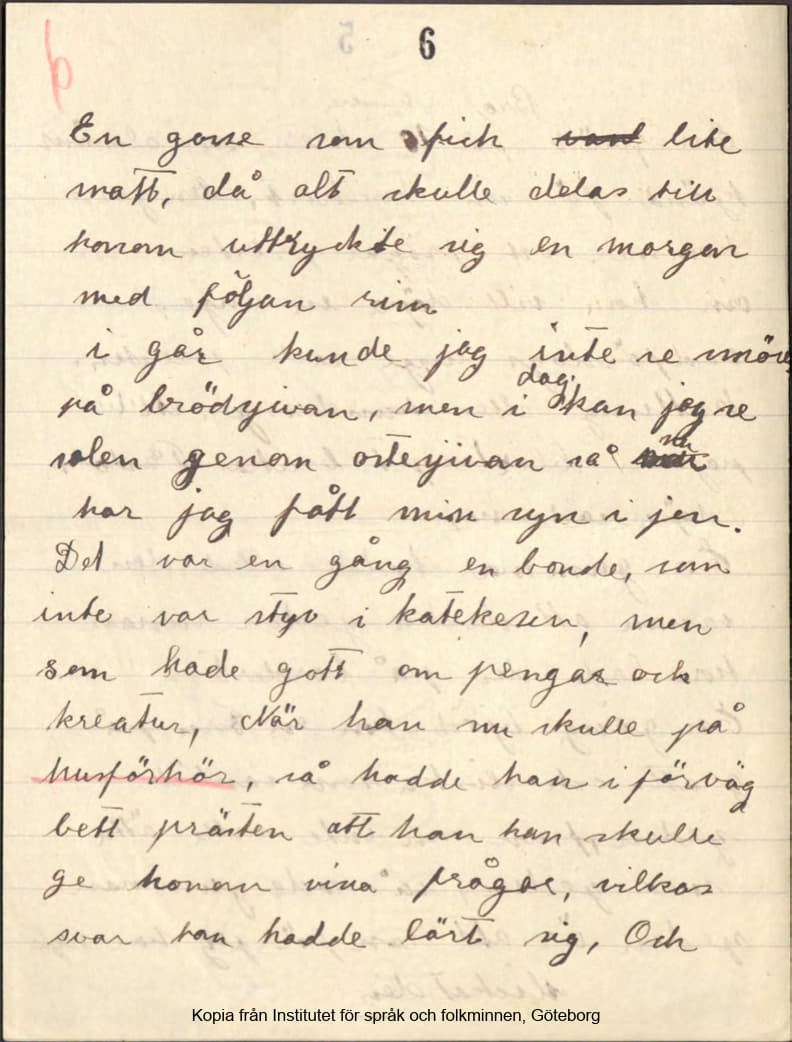 6
En gosse som fick lite
matt, då alt skulle delas till
honom uttryckte sig en morgon
med följan rim
i går kunde jag inte se smöret
på brödsjivan, men i dag kan jag se
solen genom ostesjivan så nu
har jag fått min syn i jen.
Det var en gång en bonde, som
inte var styv i katekesen, men
som hade gott om pengar ock
kreatur, När han nu skulle på
husförhör, så hadde han i förväg
bett prästen att han han skulle
ge honom vissa frågor, vilkas
svar han hadde lärt sig, Och
Kopia från Institutet för språk och folkminnen, Göteborg